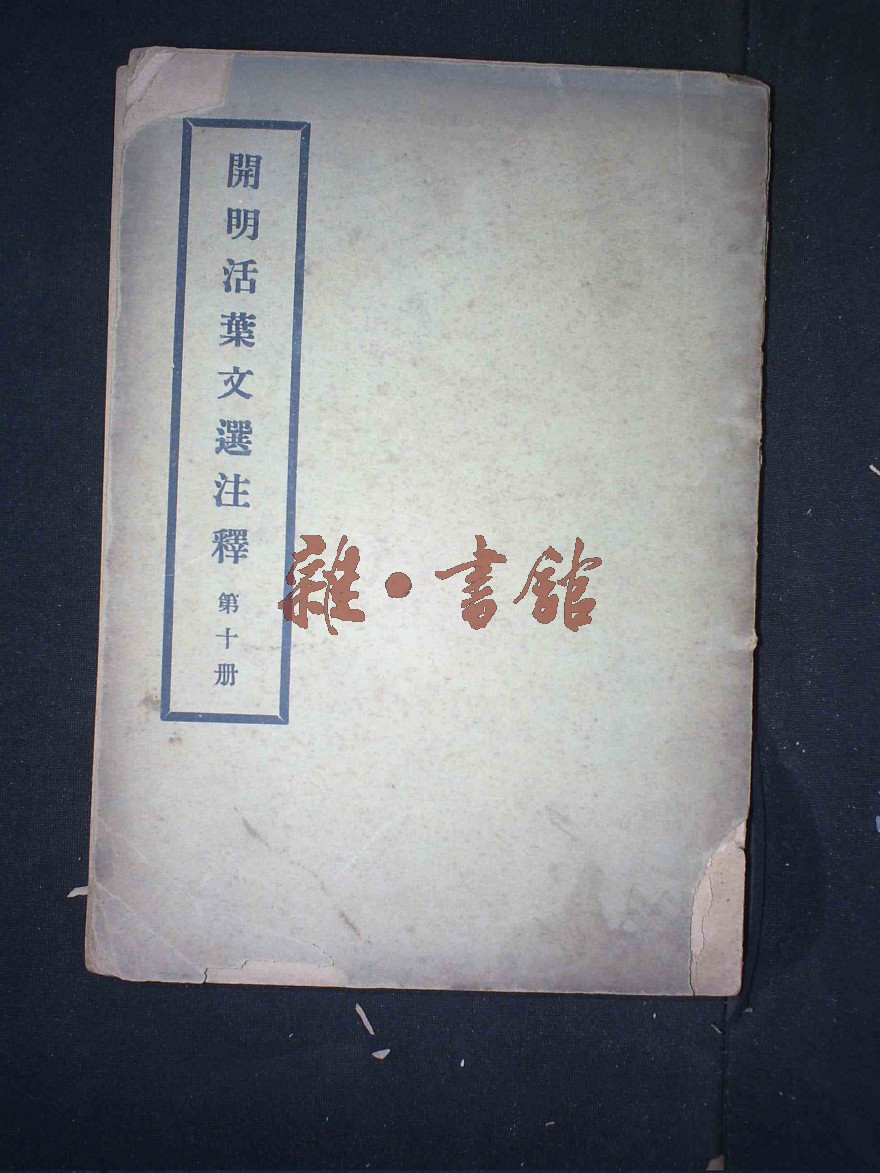 開明活葉文選注釋 第十册
雜·書館